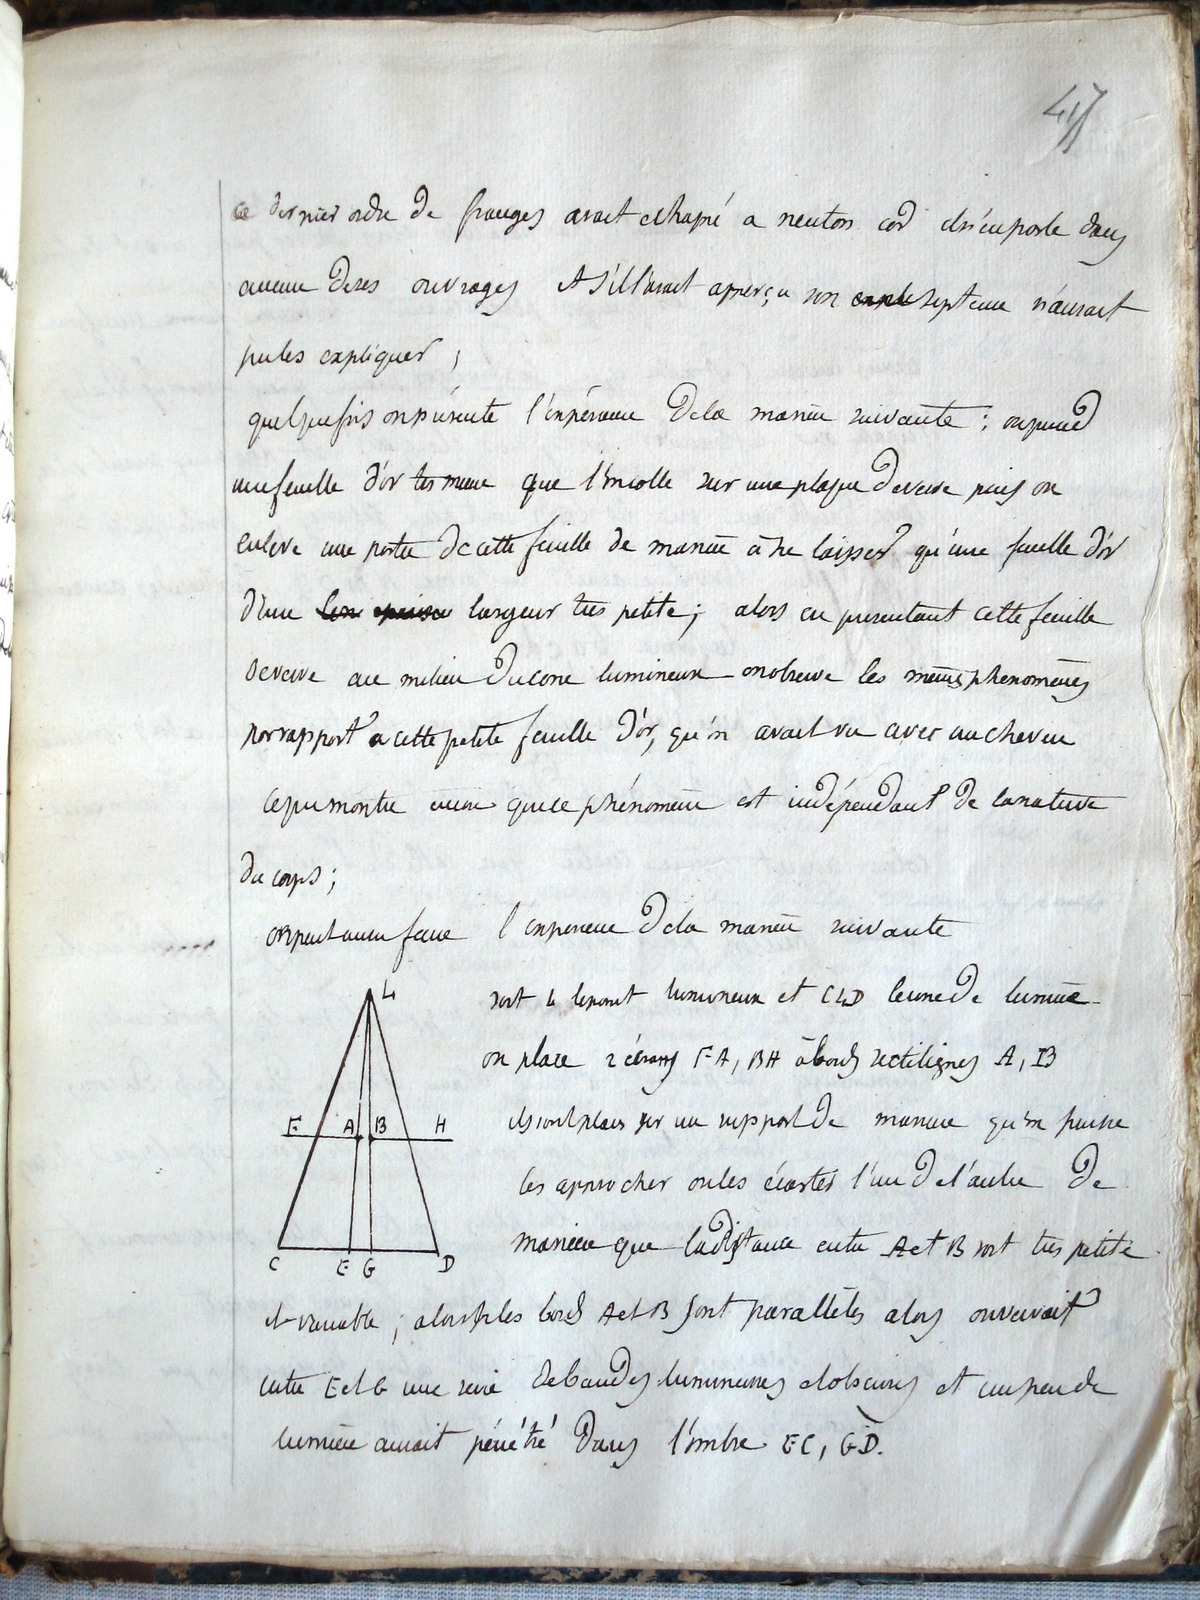 47
ce dernier ordre de franges avait echapé a neuton car il n'en parle dans
aucun de ses ouvrages et s'il l'avait apperçu son systeme n'aurait
pu les expliquer ;
quelquefois on présente l'expérience de la maniere suivante : on prend
une feuille d'or tres mince que l'on colle sur une plaque de verre puis on
enleve une partie de cette feuille de maniere à ne laisser qu'une feuille d'or
d'une largeur tres petite ; alors en presentant cette feuille
de verre au milieu du cone lumineux on observe les memes phenomenes
par rapport a cette petite feuille d'or, qu'on avait vu avec un cheveu
ce qui montre que ce phénomene est indépendant de la nature
du corps ;
on peut faire l'experience de la maniere suivante
soit L le point lumineux et CLD le cone de lumiere
on place 2 écrans FA, BH à bords rectilignes A, B
ils sont placés sur un support de maniere qu'on puisse
les approcher ou les écarter l'un de l'autre de
maniere que la distance entre A et B soit tres petite
et variable ; les bords A et B sont paralleles alors on verrait
entre E et G une serie de bandes lumineuses et obscures et un peu de
lumiere aurait pénétré dans l'ombre EC, GD.
L
F A B H
C E G D